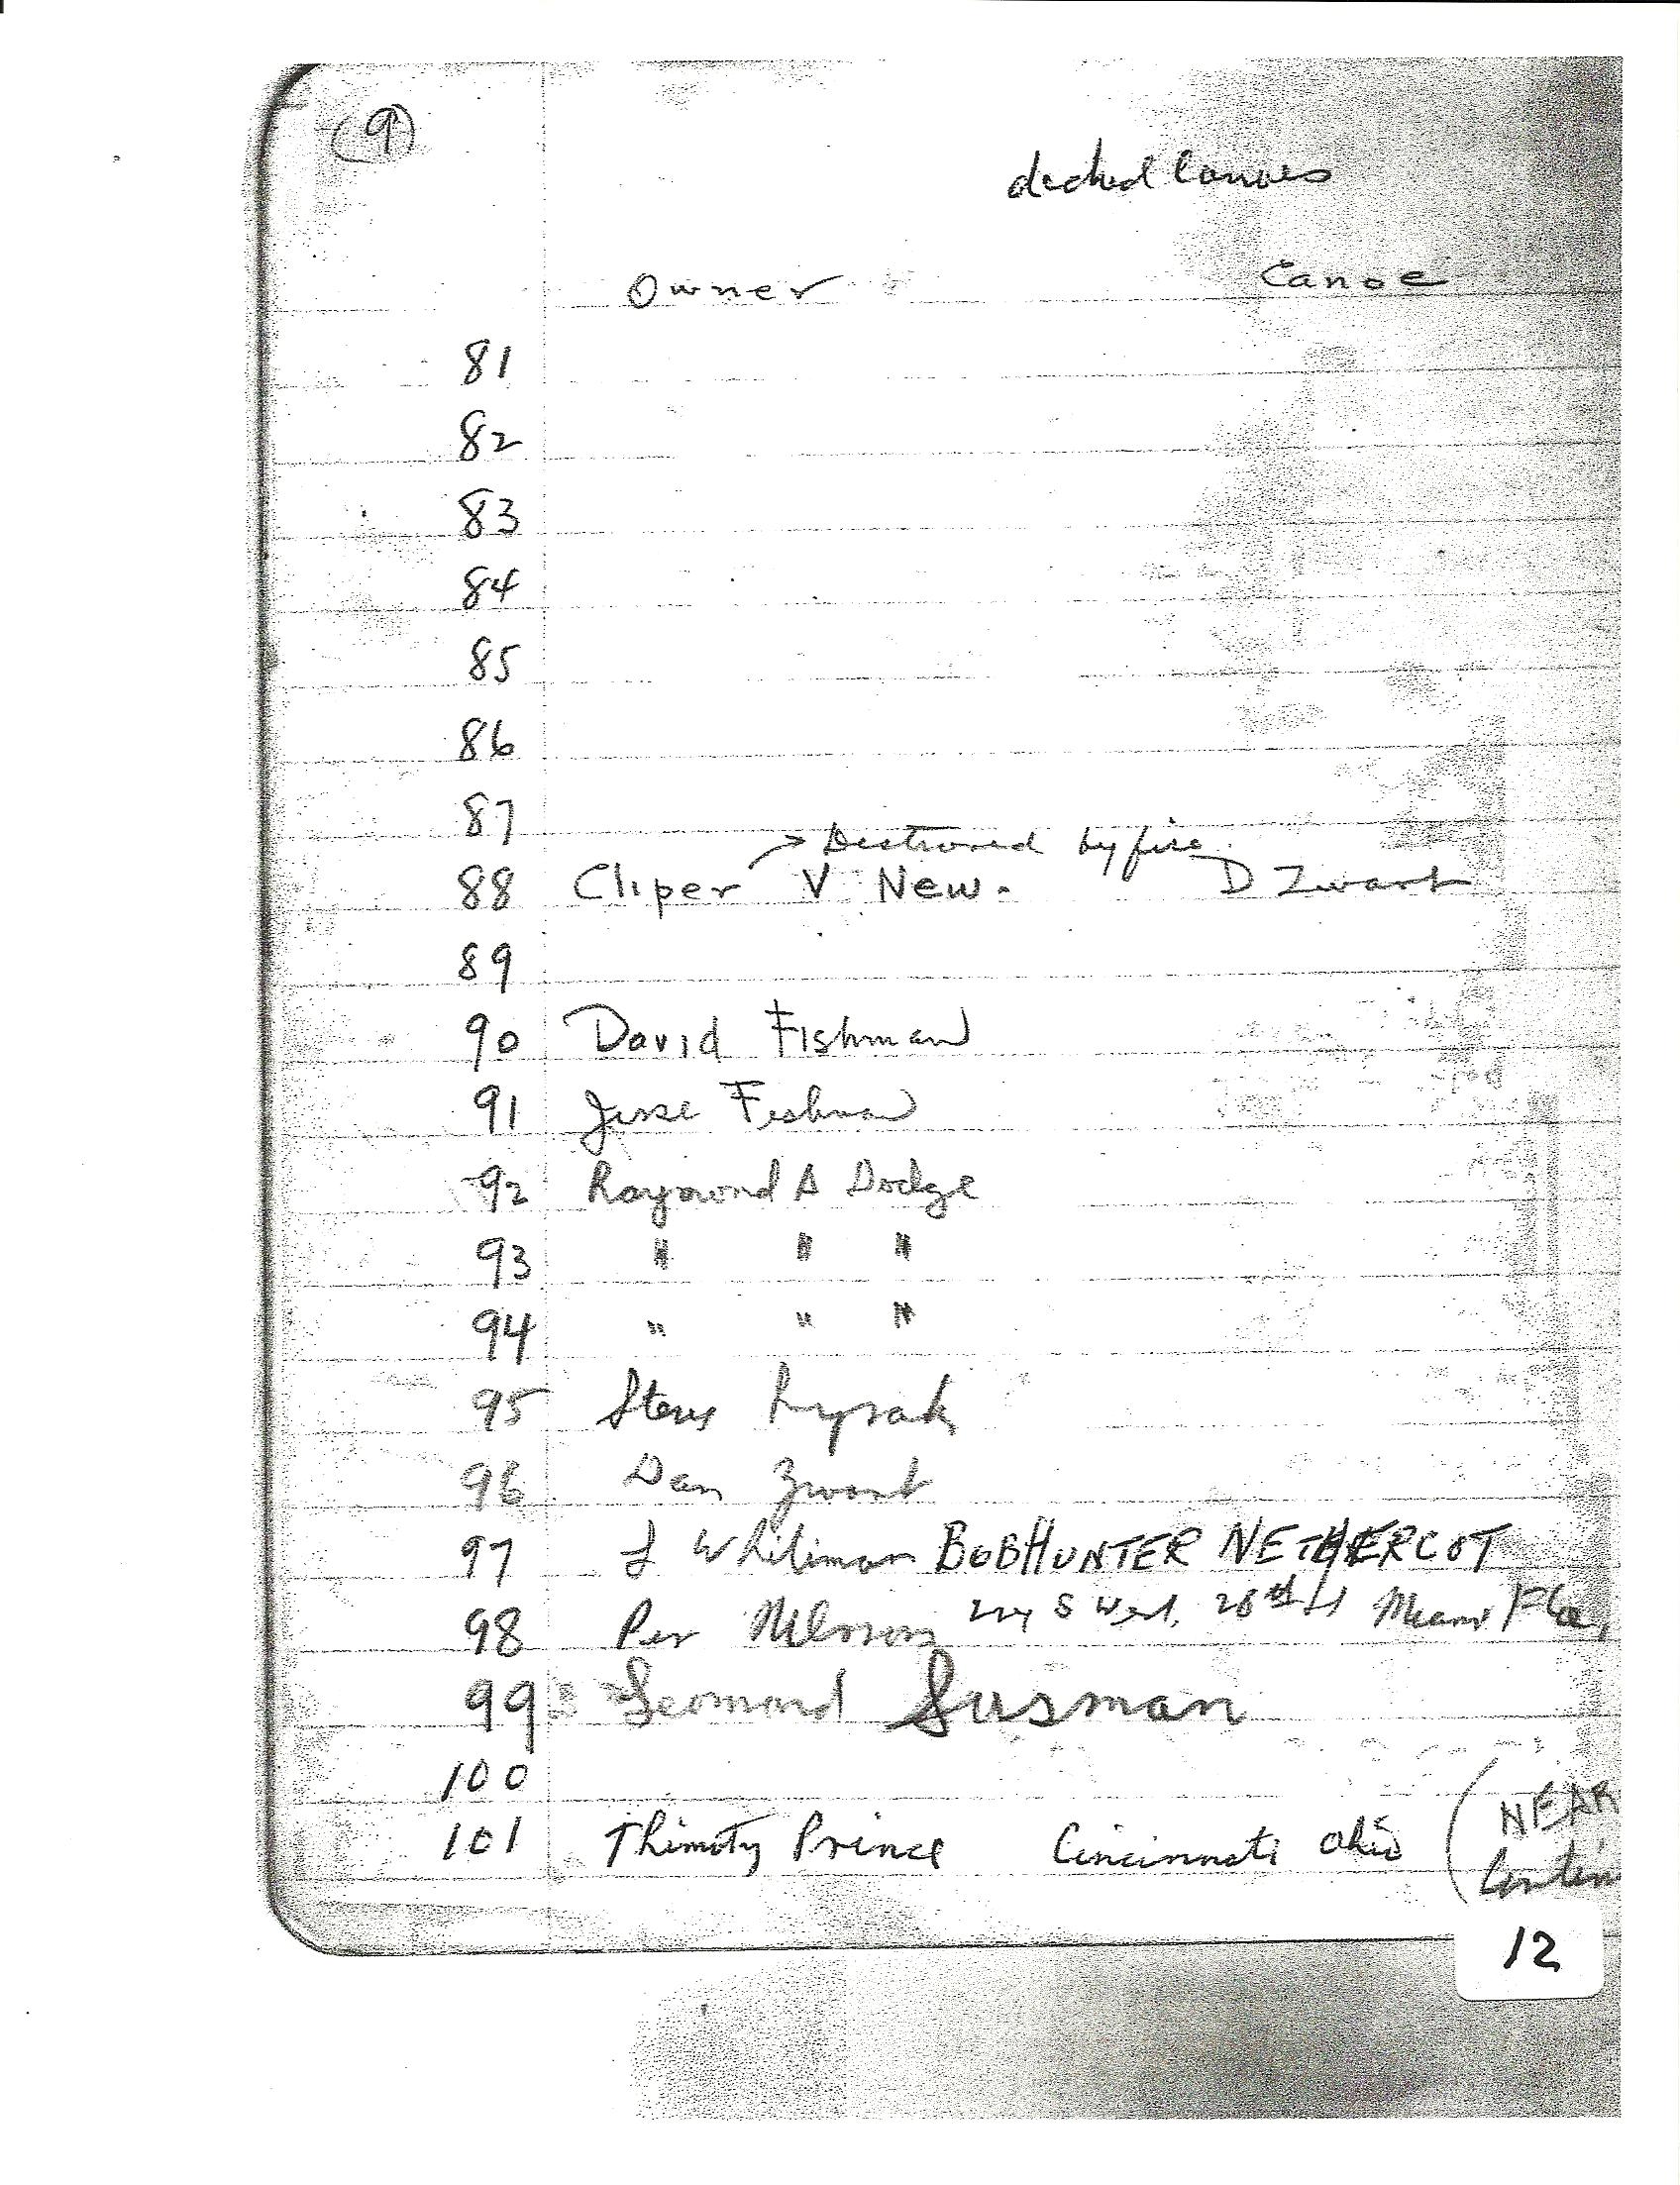 9
decked Canoes
Owner Canoe
81
82
83
84
85
86
87
Destroyed by fire
88 Cliper V New. D Zwart
89
90 David Fishman
91 Jesse Fishman
92 Raymond A Dodge
93 " " "
94 " " "
95 Steve Lysak
96 Dan Zwart
97 J Whitman BOB HUNTER NETHERCOT
98 Per Nilsson S West. 26th St Miami Fla,
99 Leonard Susman
100
101 Thimoty Prince Cincinnati Ohio (NEAR
12